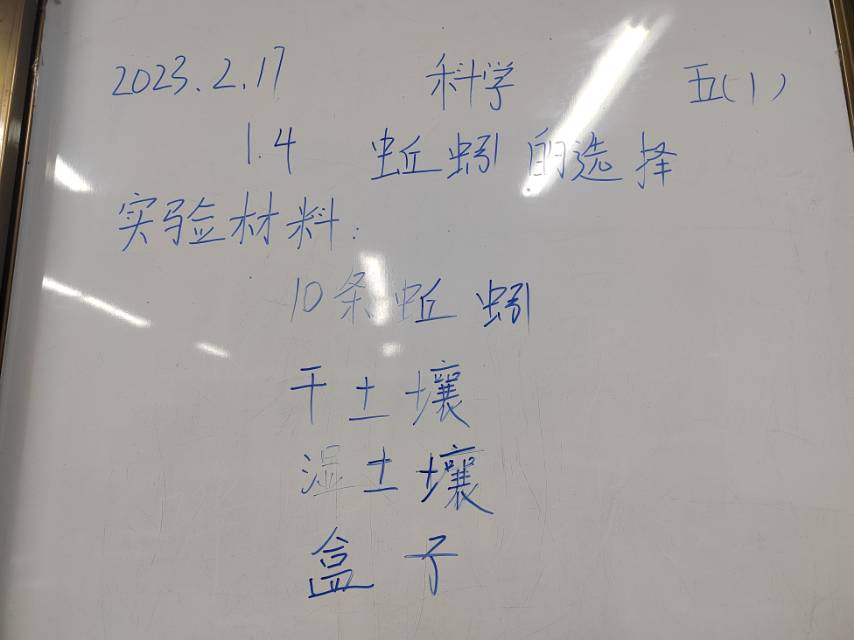 2023.2.17 科学 五(1)
1.4 蚯蚓的选择
实验材料:
10条蚯蚓
干土壤
湿土壤
盒子